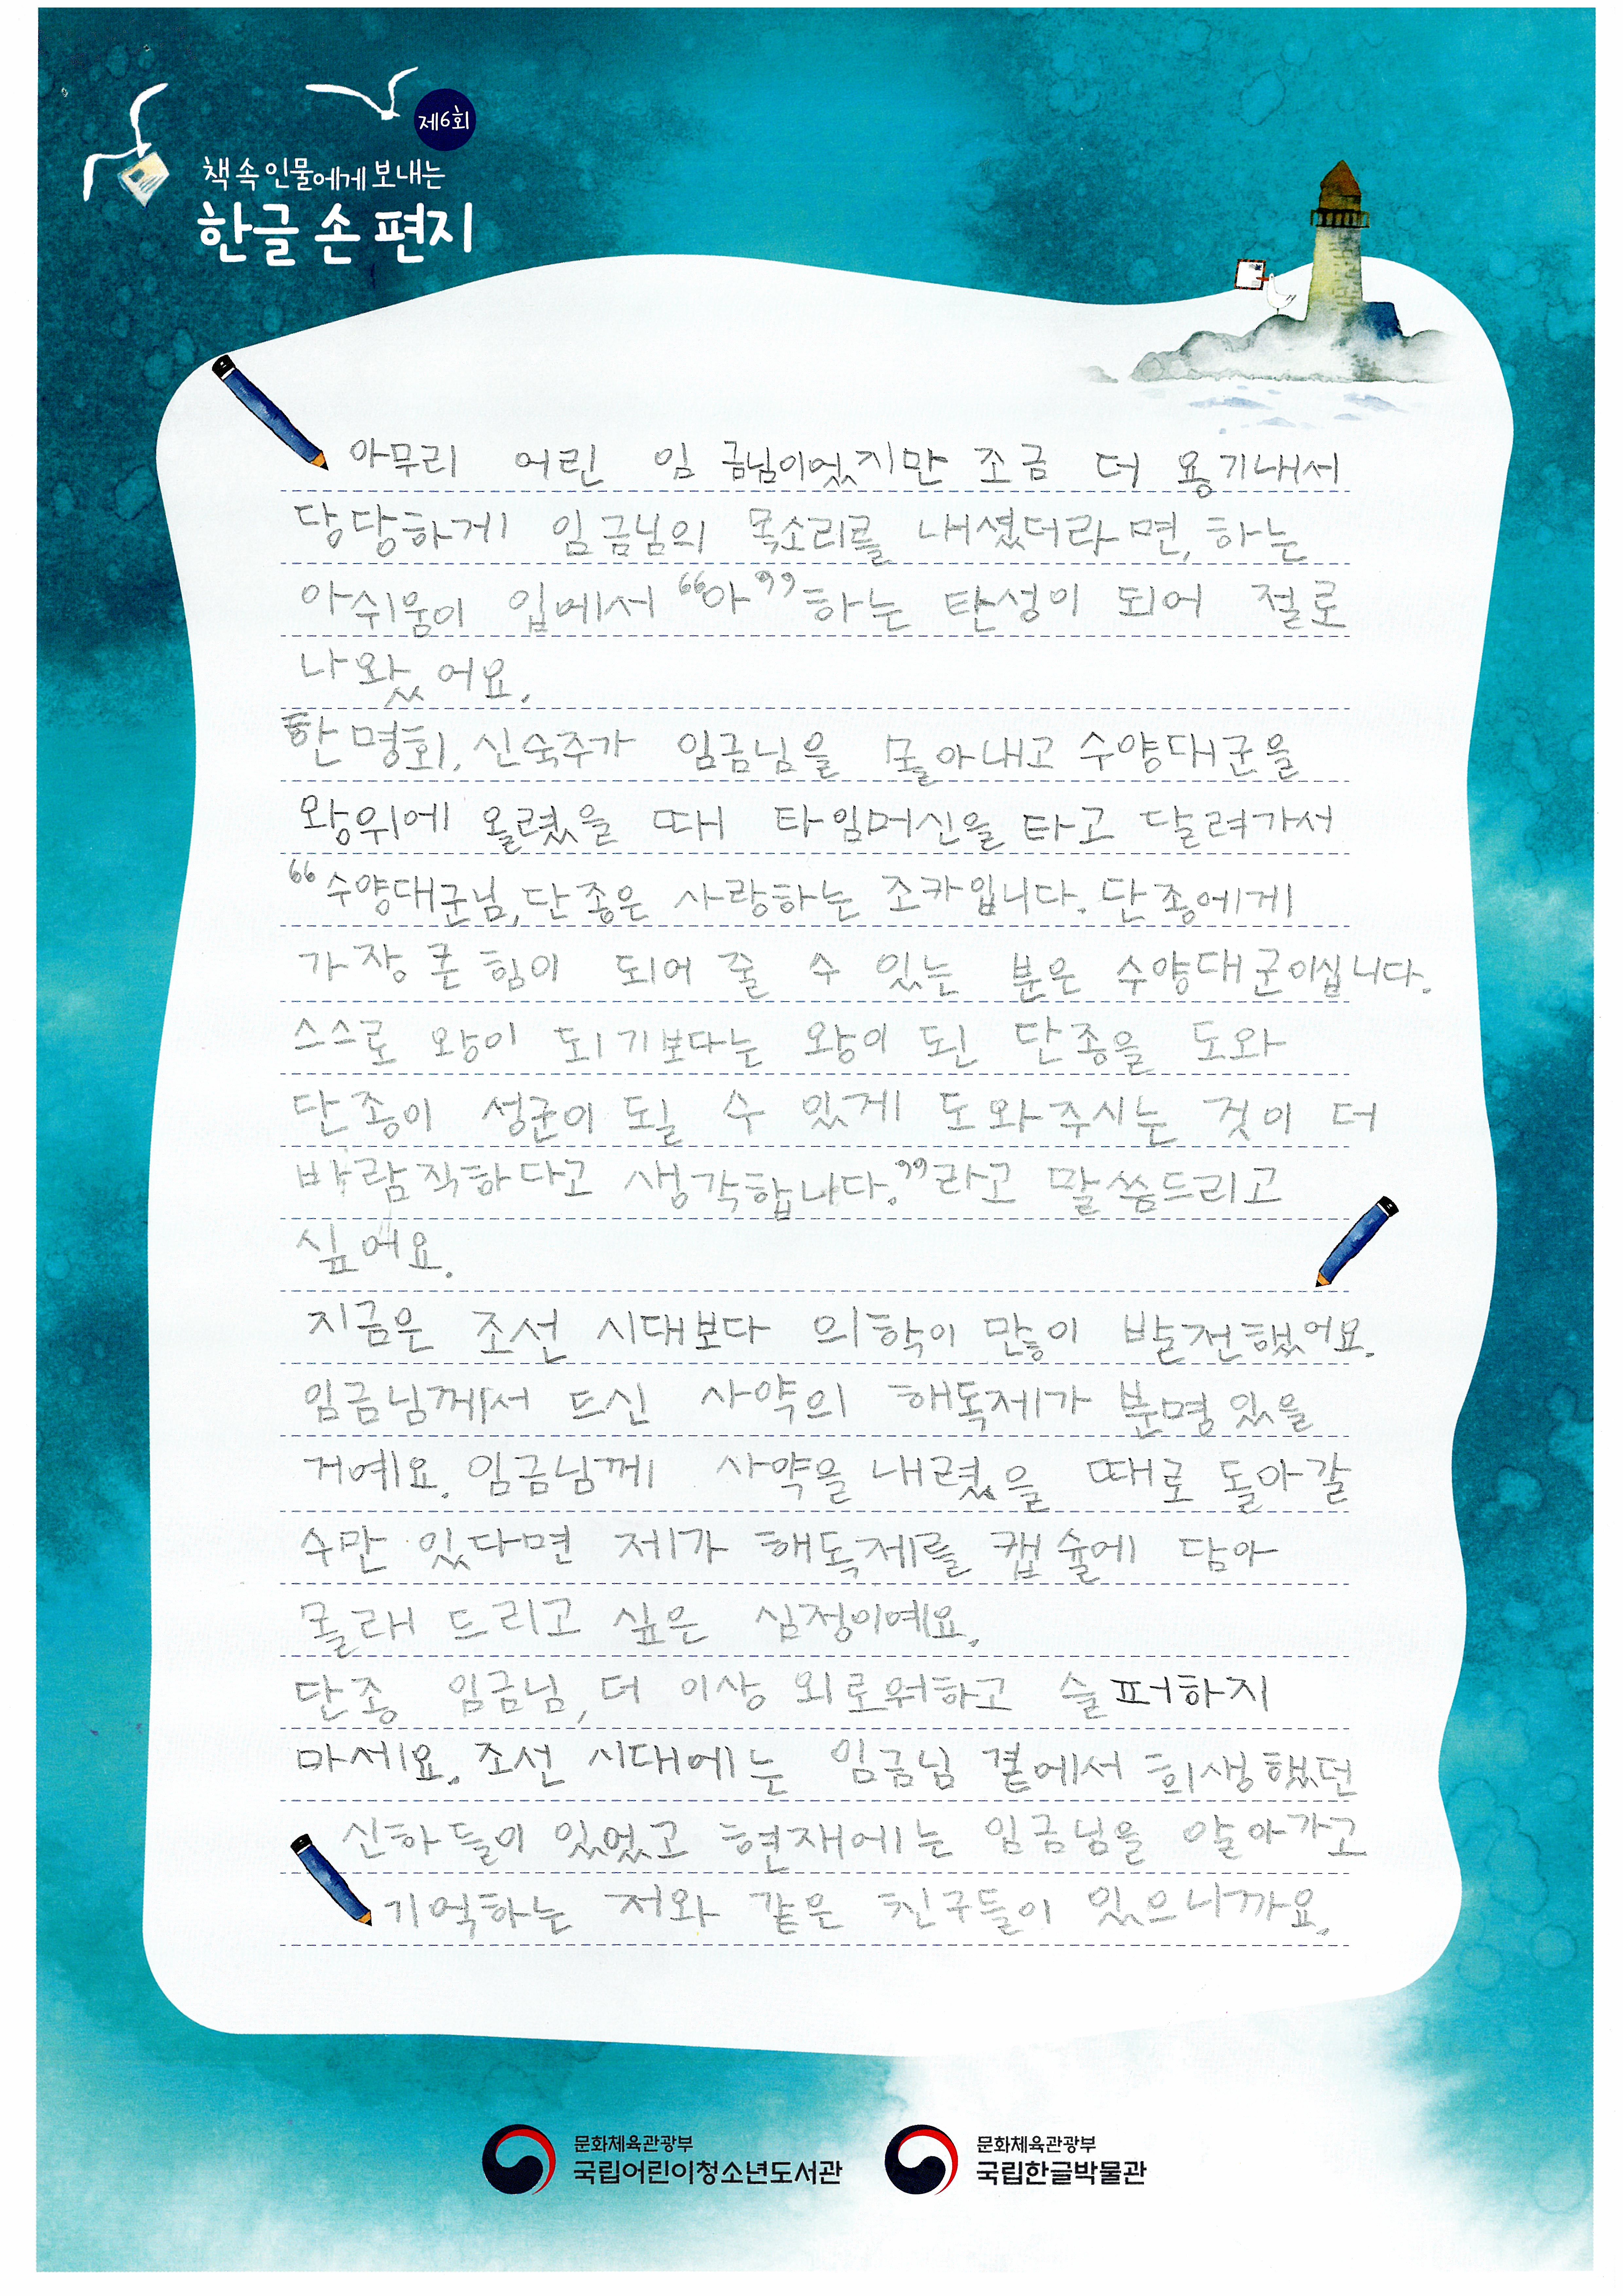 제6회
책 속 인물에게 보내는
한글 손 편지
아무리 어린 임금님이었지만 조금 더 용기내서
당당하게 임금님의 목소리를 내셨더라면, 하는
아쉬움이 입에서 “아” 하는 탄성이 되어 절로
나왔어요.
한명회, 신숙주가 임금님을 몰아내고 수양대군을
왕위에 올렸을 때 타임머신을 타고 달려가서
“수양대군님, 단종은 사랑하는 조카입니다. 단종에게
가장 큰 힘이 되어 줄 수 있는 분은 수양대군이십니다.
스스로 왕이 되기보다는 왕이 된 단종을 도와
단종이 성군이 될 수 있게 도와주시는 것이 더
바람직하다고 생각합니다.”라고 말씀드리고
싶어요.
지금은 조선 시대보다 의학이 많이 발전했어요.
임금님께서 드신 사약의 해독제가 분명 있을
거예요. 임금님께 사약을 내렸을 때로 돌아갈
수만 있다면 제가 해독제를 캡슐에 담아
몰래 드리고 싶은 심정이예요.
단종 임금님, 더 이상 외로워하고 슬퍼하지
마세요. 조선 시대에는 임금님 곁에서 희생했던
신하들이 있었고 현재에는 임금님을 알아가고
기억하는 저와 같은 친구들이 있으니까요.
문화체육관광부
국립어린이청소년도서관
문화체육관광부
국립한글박물관